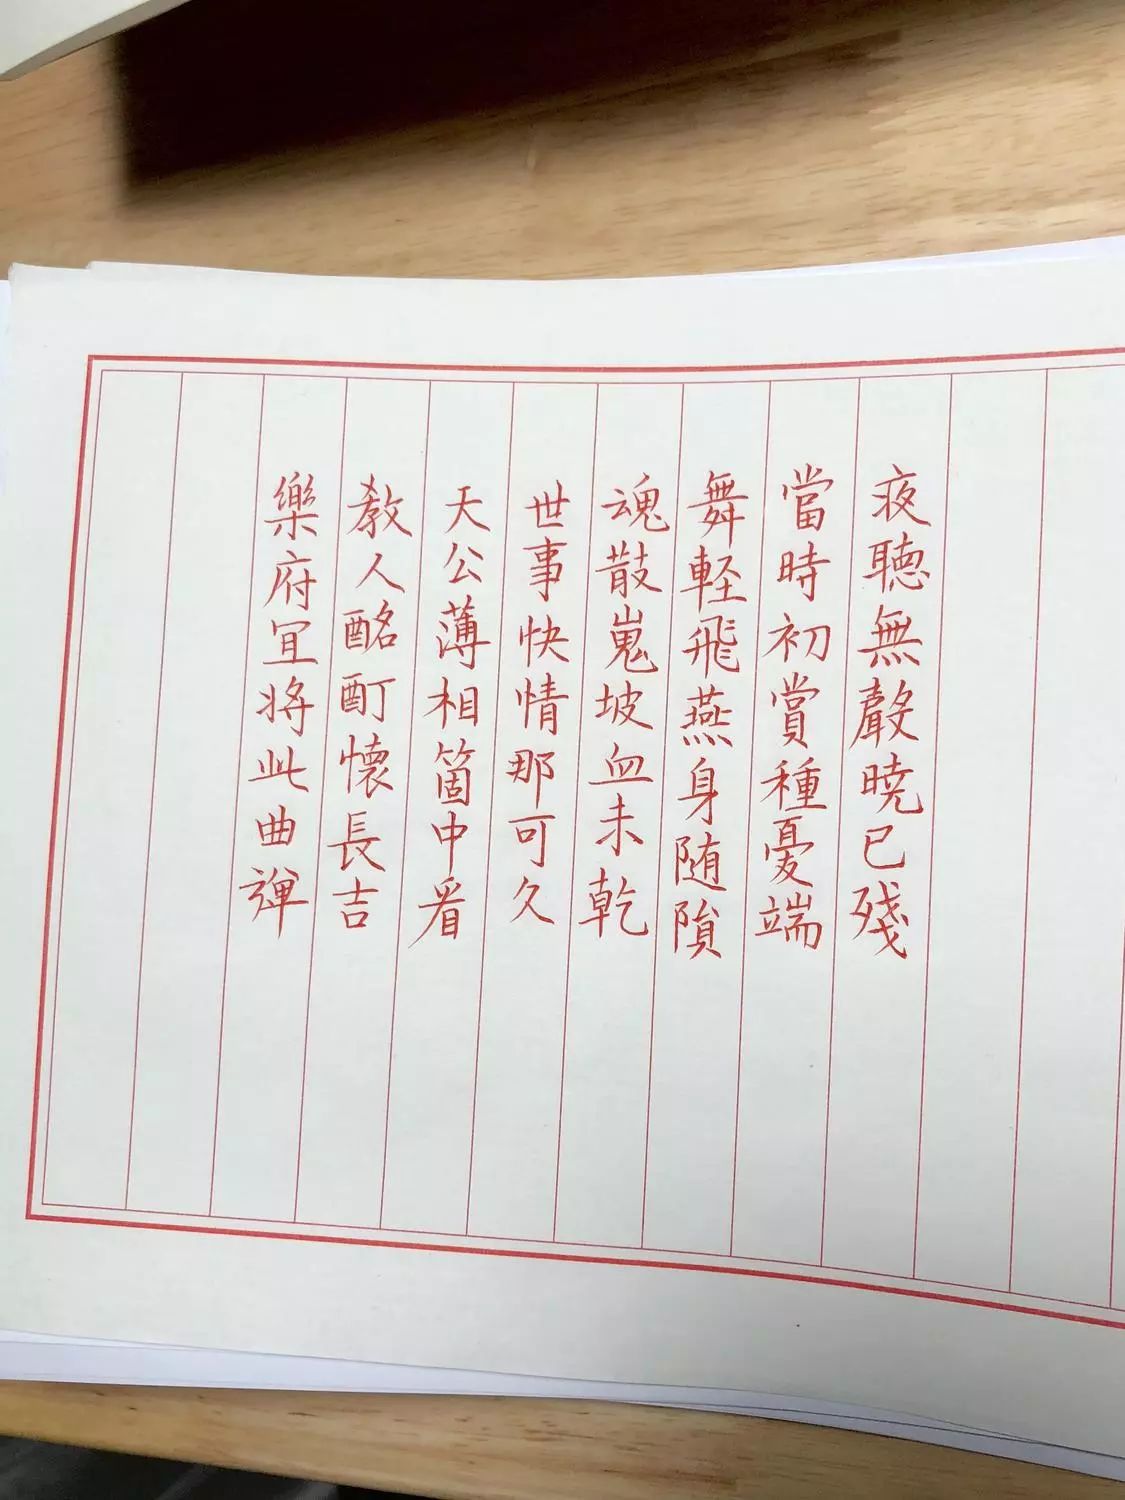 夜聴無聲曉已殘
當時初賞種憂端
舞軽飛燕身随隕
魂散嵬坡血未乾
世事快情那可久
天公薄相箇中看
教人酩酊懷長吉
樂府宜将此曲弾